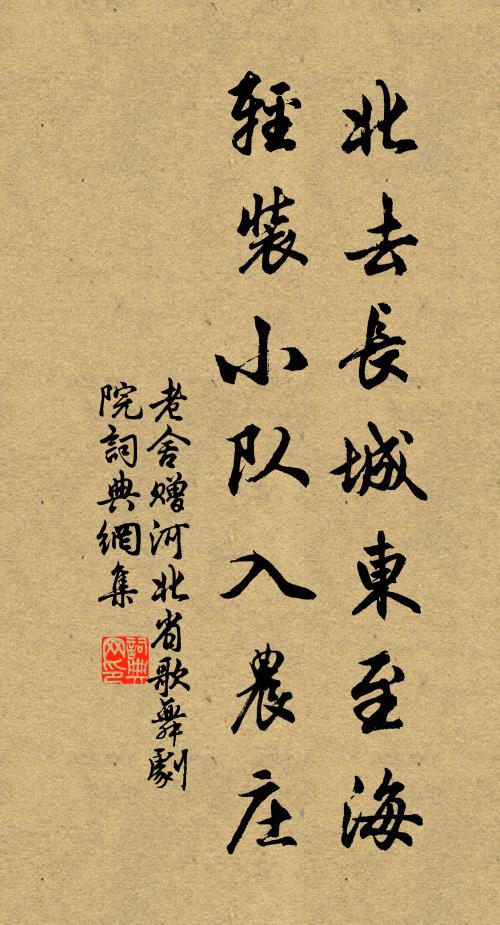 北去長城東至海
輕裝小队入農庄
老舍赠河北省歌舞劇
院詞典網集
詞典网印